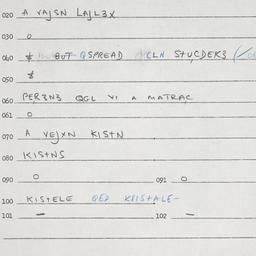 020 A VAJSN LAJL3X
030 O
040 BUT QSPREAD CLN STUCDEK3
050
060 PER3N3 QGL VI A MATRAC
061 O
070 A VEJXN KISTN
080 KISTNS
090 O 091 O
100 KISTELE QED KRISTALE-
101 — 102 —